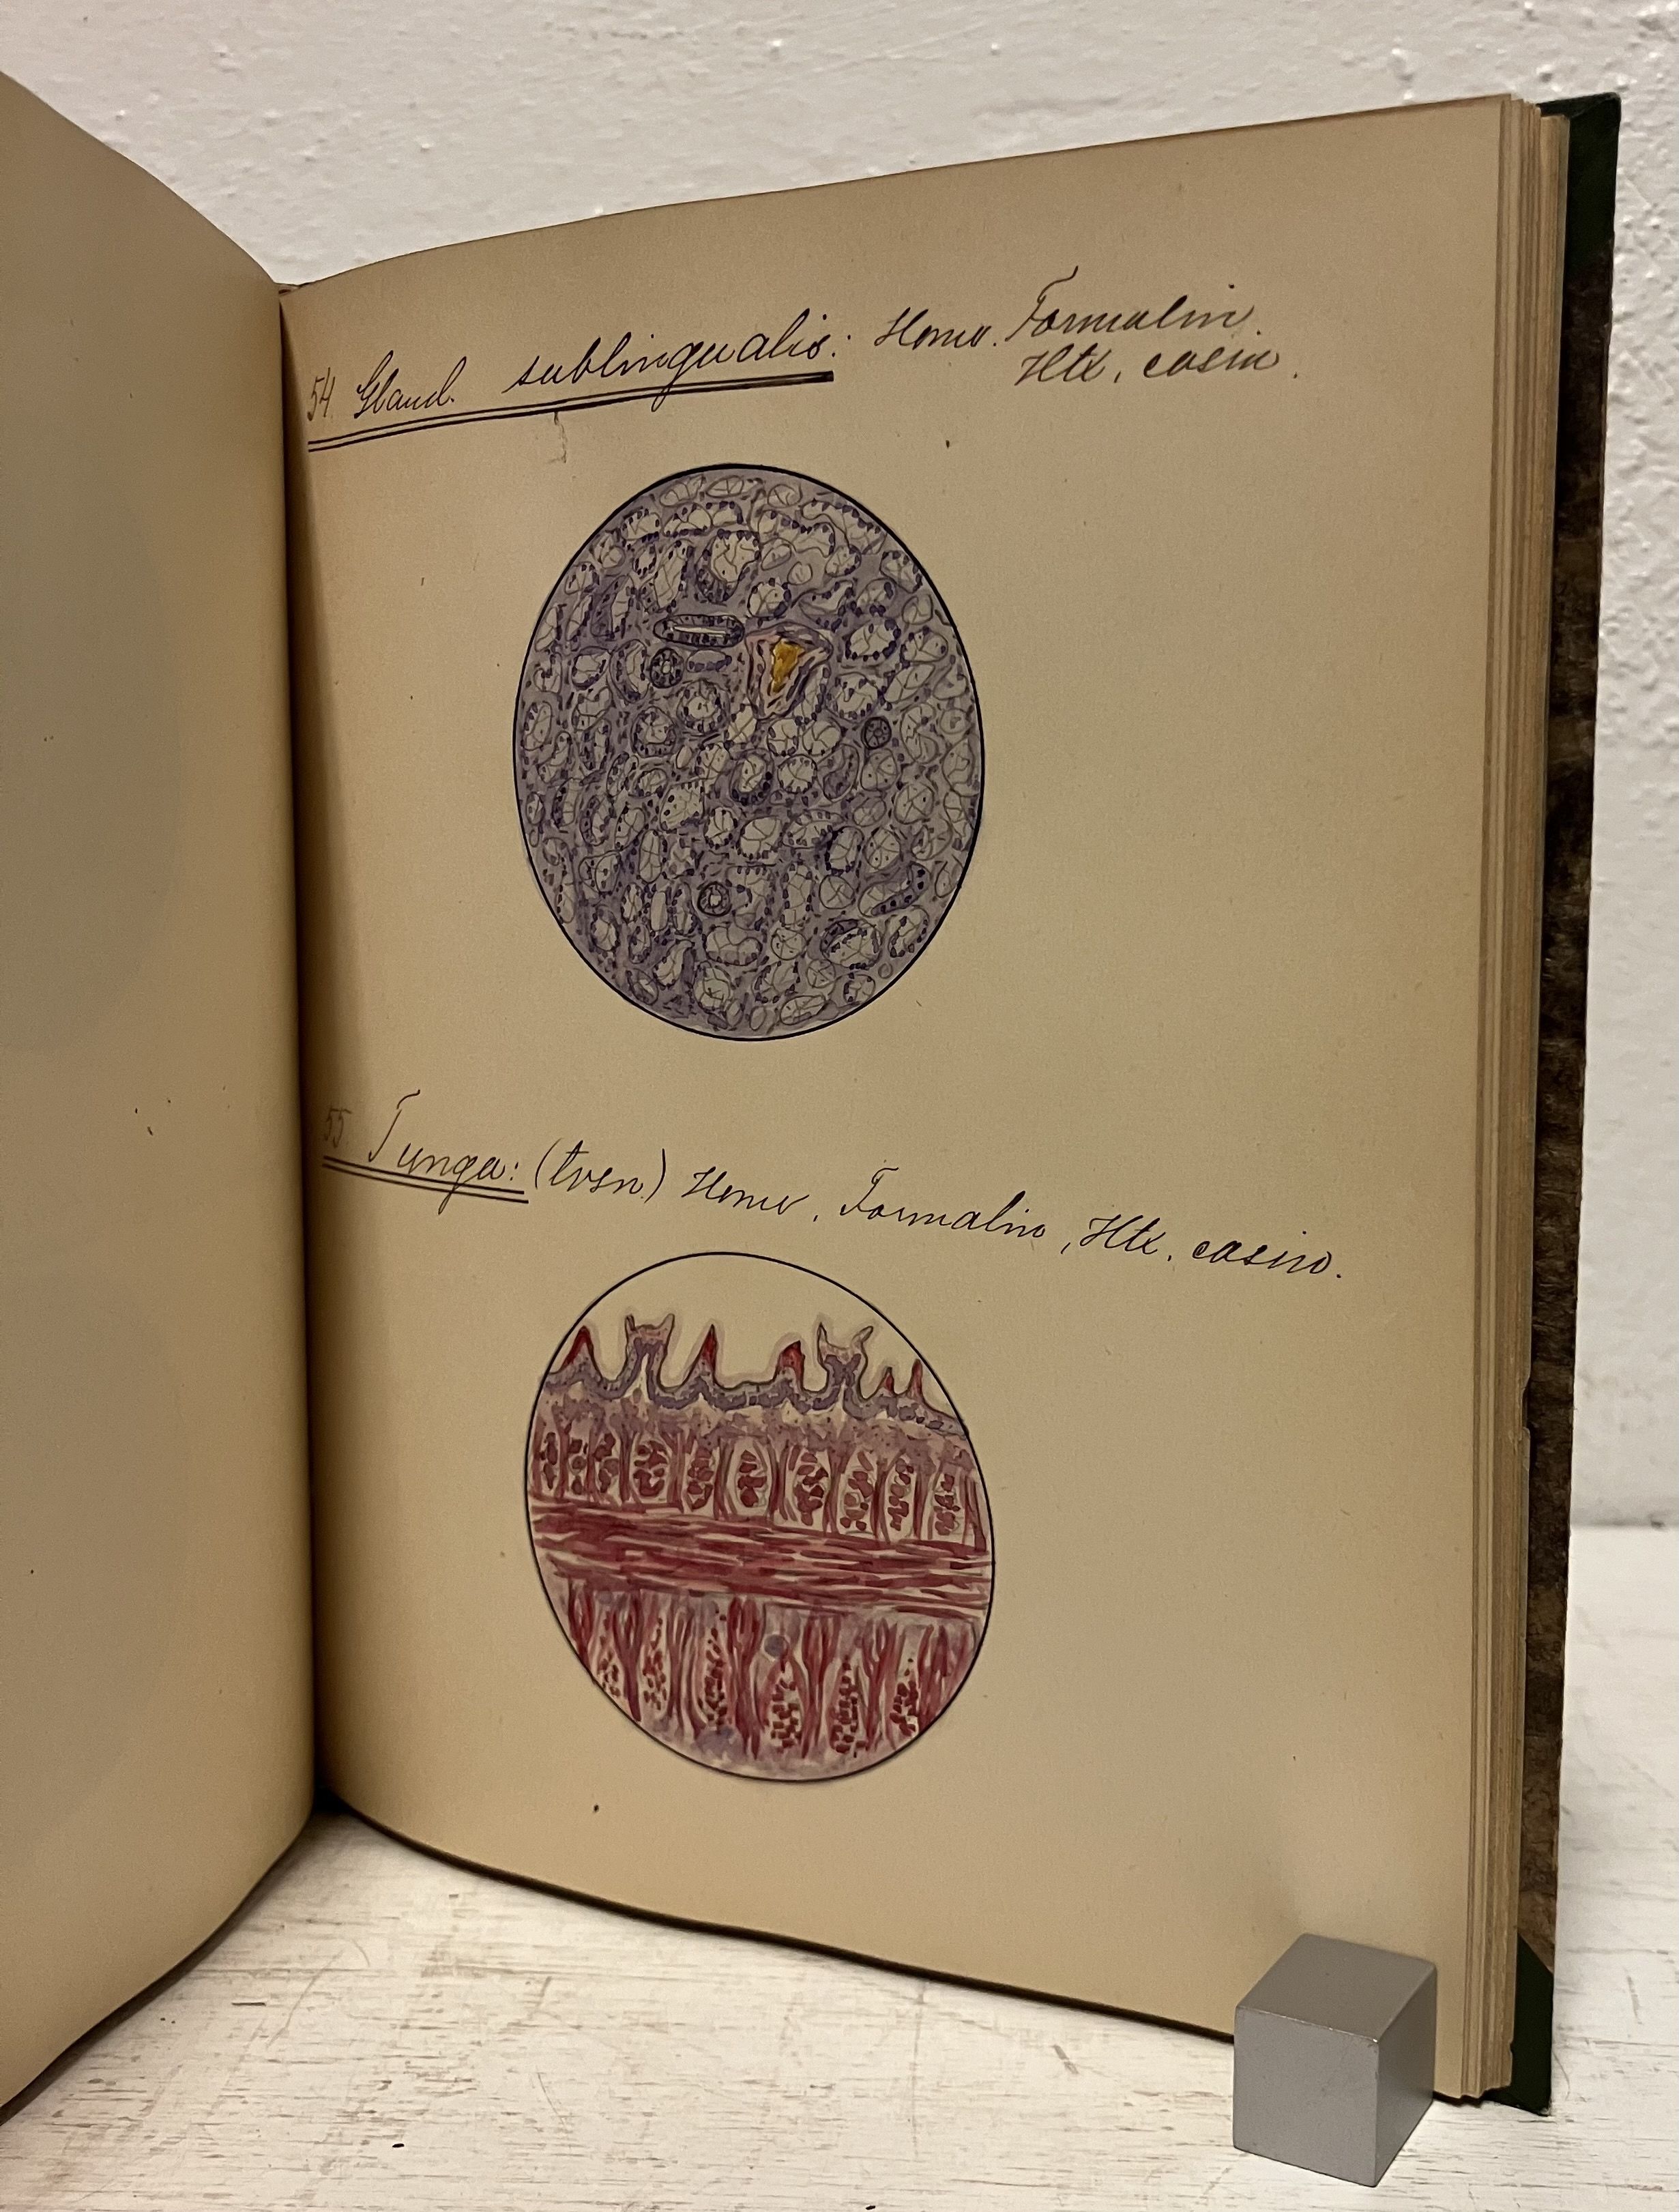 54. Gland. sublingualis: Homo. Formalin.
Htx, eosin.
55. Tunga: (tvsn.) Homo, Formalin, Htx. eosin.